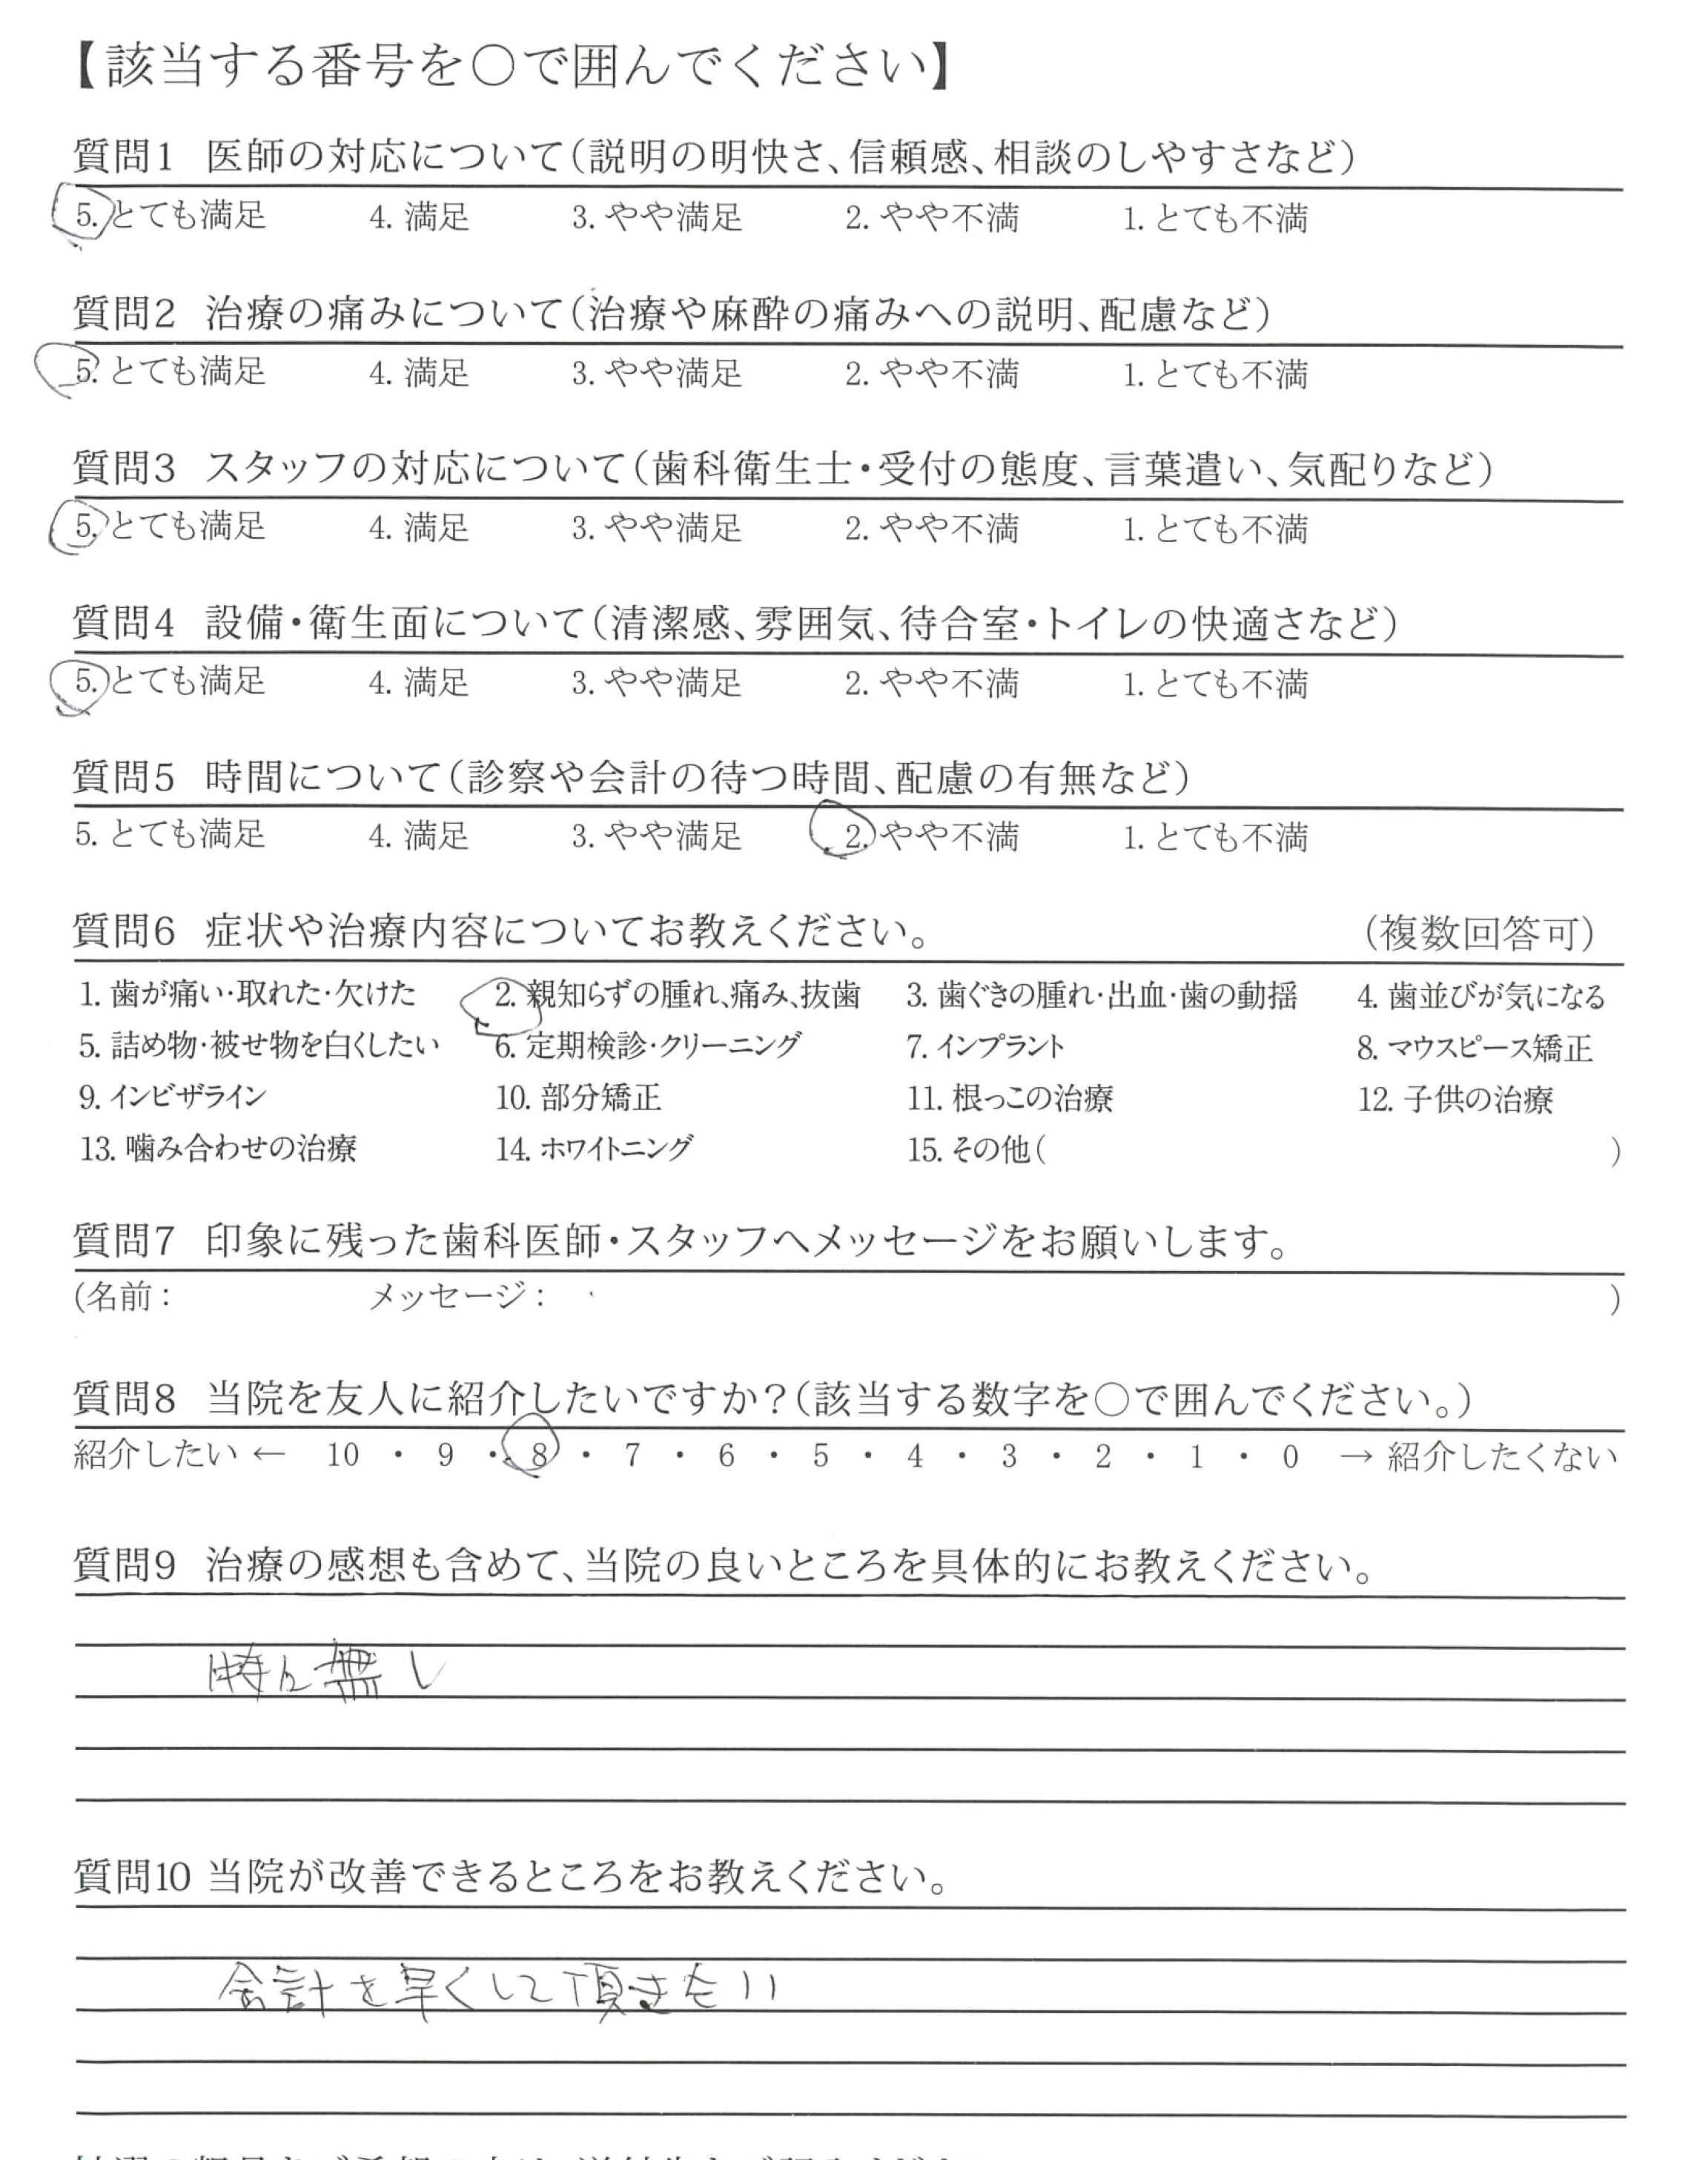 【該当する番号を○で囲んでください】
質問1 医師の対応について(説明の明快さ、信頼感、相談のしやすさなど)
5. とても満足 4. 満足 3. やや満足 2. やや不満 1. とても不満
質問2 治療の痛みについて(治療や麻酔の痛みへの説明、配慮など)
5. とても満足 4. 満足 3. やや満足 2. やや不満 1. とても不満
質問3 スタッフの対応について(歯科衛生士・受付の態度、言葉遣い、気配りなど)
5. とても満足 4. 満足 3. やや満足 2. やや不満 1. とても不満
質問4 設備・衛生面について(清潔感、雰囲気、待合室・トイレの快適さなど)
5. とても満足 4. 満足 3. やや満足 2. やや不満 1. とても不満
質問5 時間について(診察や会計の待つ時間、配慮の有無など)
5. とても満足 4. 満足 3. やや満足 2. やや不満 1. とても不満
質問6 症状や治療内容についてお教えください。 (複数回答可)
1. 歯が痛い・取れた・欠けた 2. 親知らずの腫れ、痛み、抜歯 3. 歯ぐきの腫れ・出血・歯の動揺 4. 歯並びが気になる
5. 詰め物・被せ物を白くしたい 6. 定期検診・クリーニング 7. インプラント 8. マウスピース矯正
9. インビザライン 10. 部分矯正 11. 根っこの治療 12. 子供の治療
13. 噛み合わせの治療 14. ホワイトニング 15. その他( )
質問7 印象に残った歯科医師・スタッフへメッセージをお願いします。
(名前: メッセージ: )
質問8 当院を友人に紹介したいですか?(該当する数字を○で囲んでください。)
紹介したい ← 10 ・ 9 ・ 8 ・ 7 ・ 6 ・ 5 ・ 4 ・ 3 ・ 2 ・ 1 ・ 0 → 紹介したくない
質問9 治療の感想も含めて、当院の良いところを具体的にお教えください。
特に無し
質問10 当院が改善できるところをお教えください。
会計を早くして頂きたい